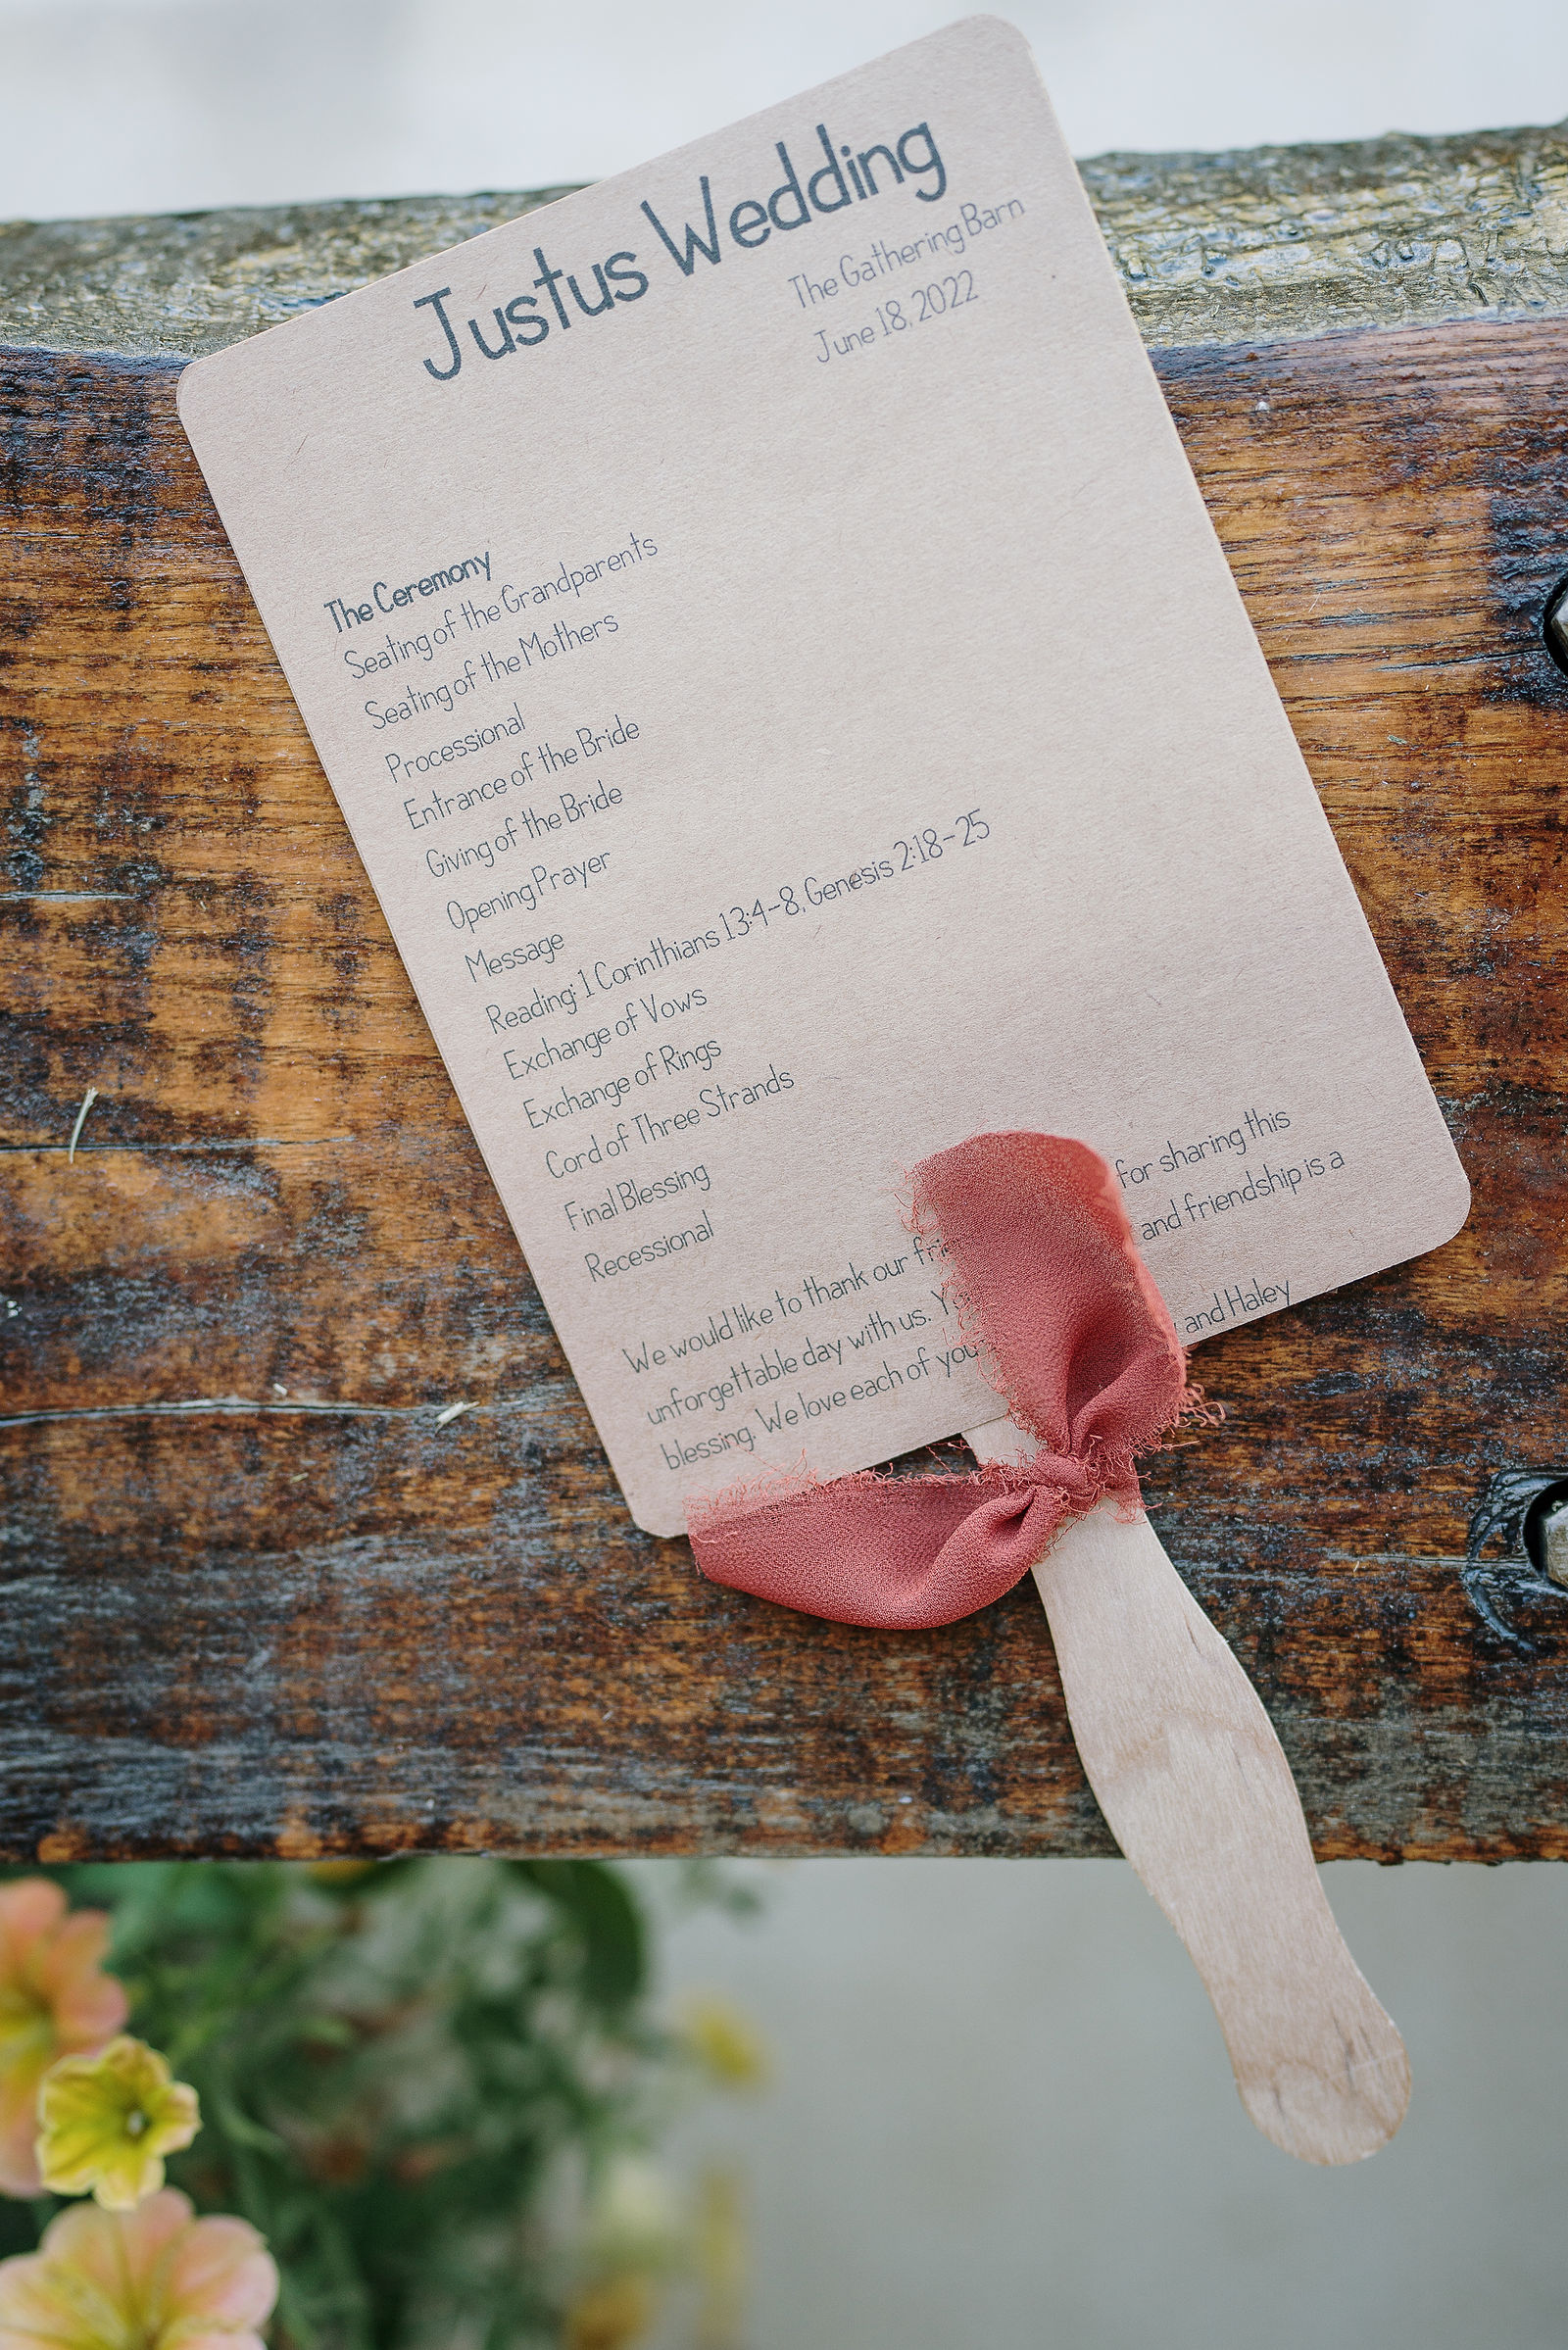 Justus Wedding
The Gathering Barn
June 18, 2022
The Ceremony
Seating of the Grandparents
Seating of the Mothers
Processional
Entrance of the Bride
Giving of the Bride
Opening Prayer
Message
Reading: 1 Corinthians 13:4-8, Genesis 2:18-25
Exchange of Vows
Exchange of Rings
Cord of Three Strands
Final Blessing
Recessional
We would like to thank our for sharing this
unforgettable day with us. and friendship is a
blessing. We love each of you and Haley